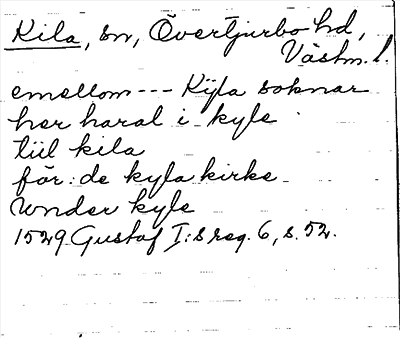 Kila, sn, Övertjurbo hd,
Västm. l.
emellom --- Kÿla soknar
her haral i kyle
tiil kila
för: de kyla kirke
Vnder kyle
1529 Gustaf I:s reg. 6, s. 52.